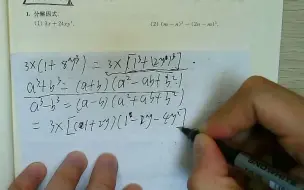 1. 分解因式:
(1) 3x + 24xy³;
3x(1+8y³) = 3x[1³+(2y)³]
a³+b³=(a+b)(a²-ab+b²)
a³-b³=(a-b)(a²+ab+b²)
=3x[(1+2y)(1²-2y-4y²)]